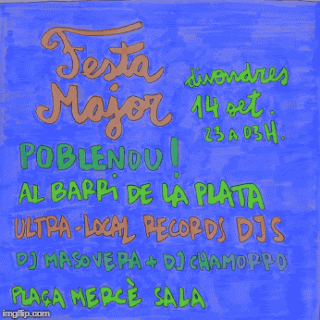 Festa
Major
divendres
14 set.
23 A 03H.
POBLENOU!
AL BARRi DE LA PLATA
ULTRA-LOCAL RECORDS DJS
DJ MASOVERA + DJ CHAMORRO
PLAÇA MERCÈ SALA
imgflip.com